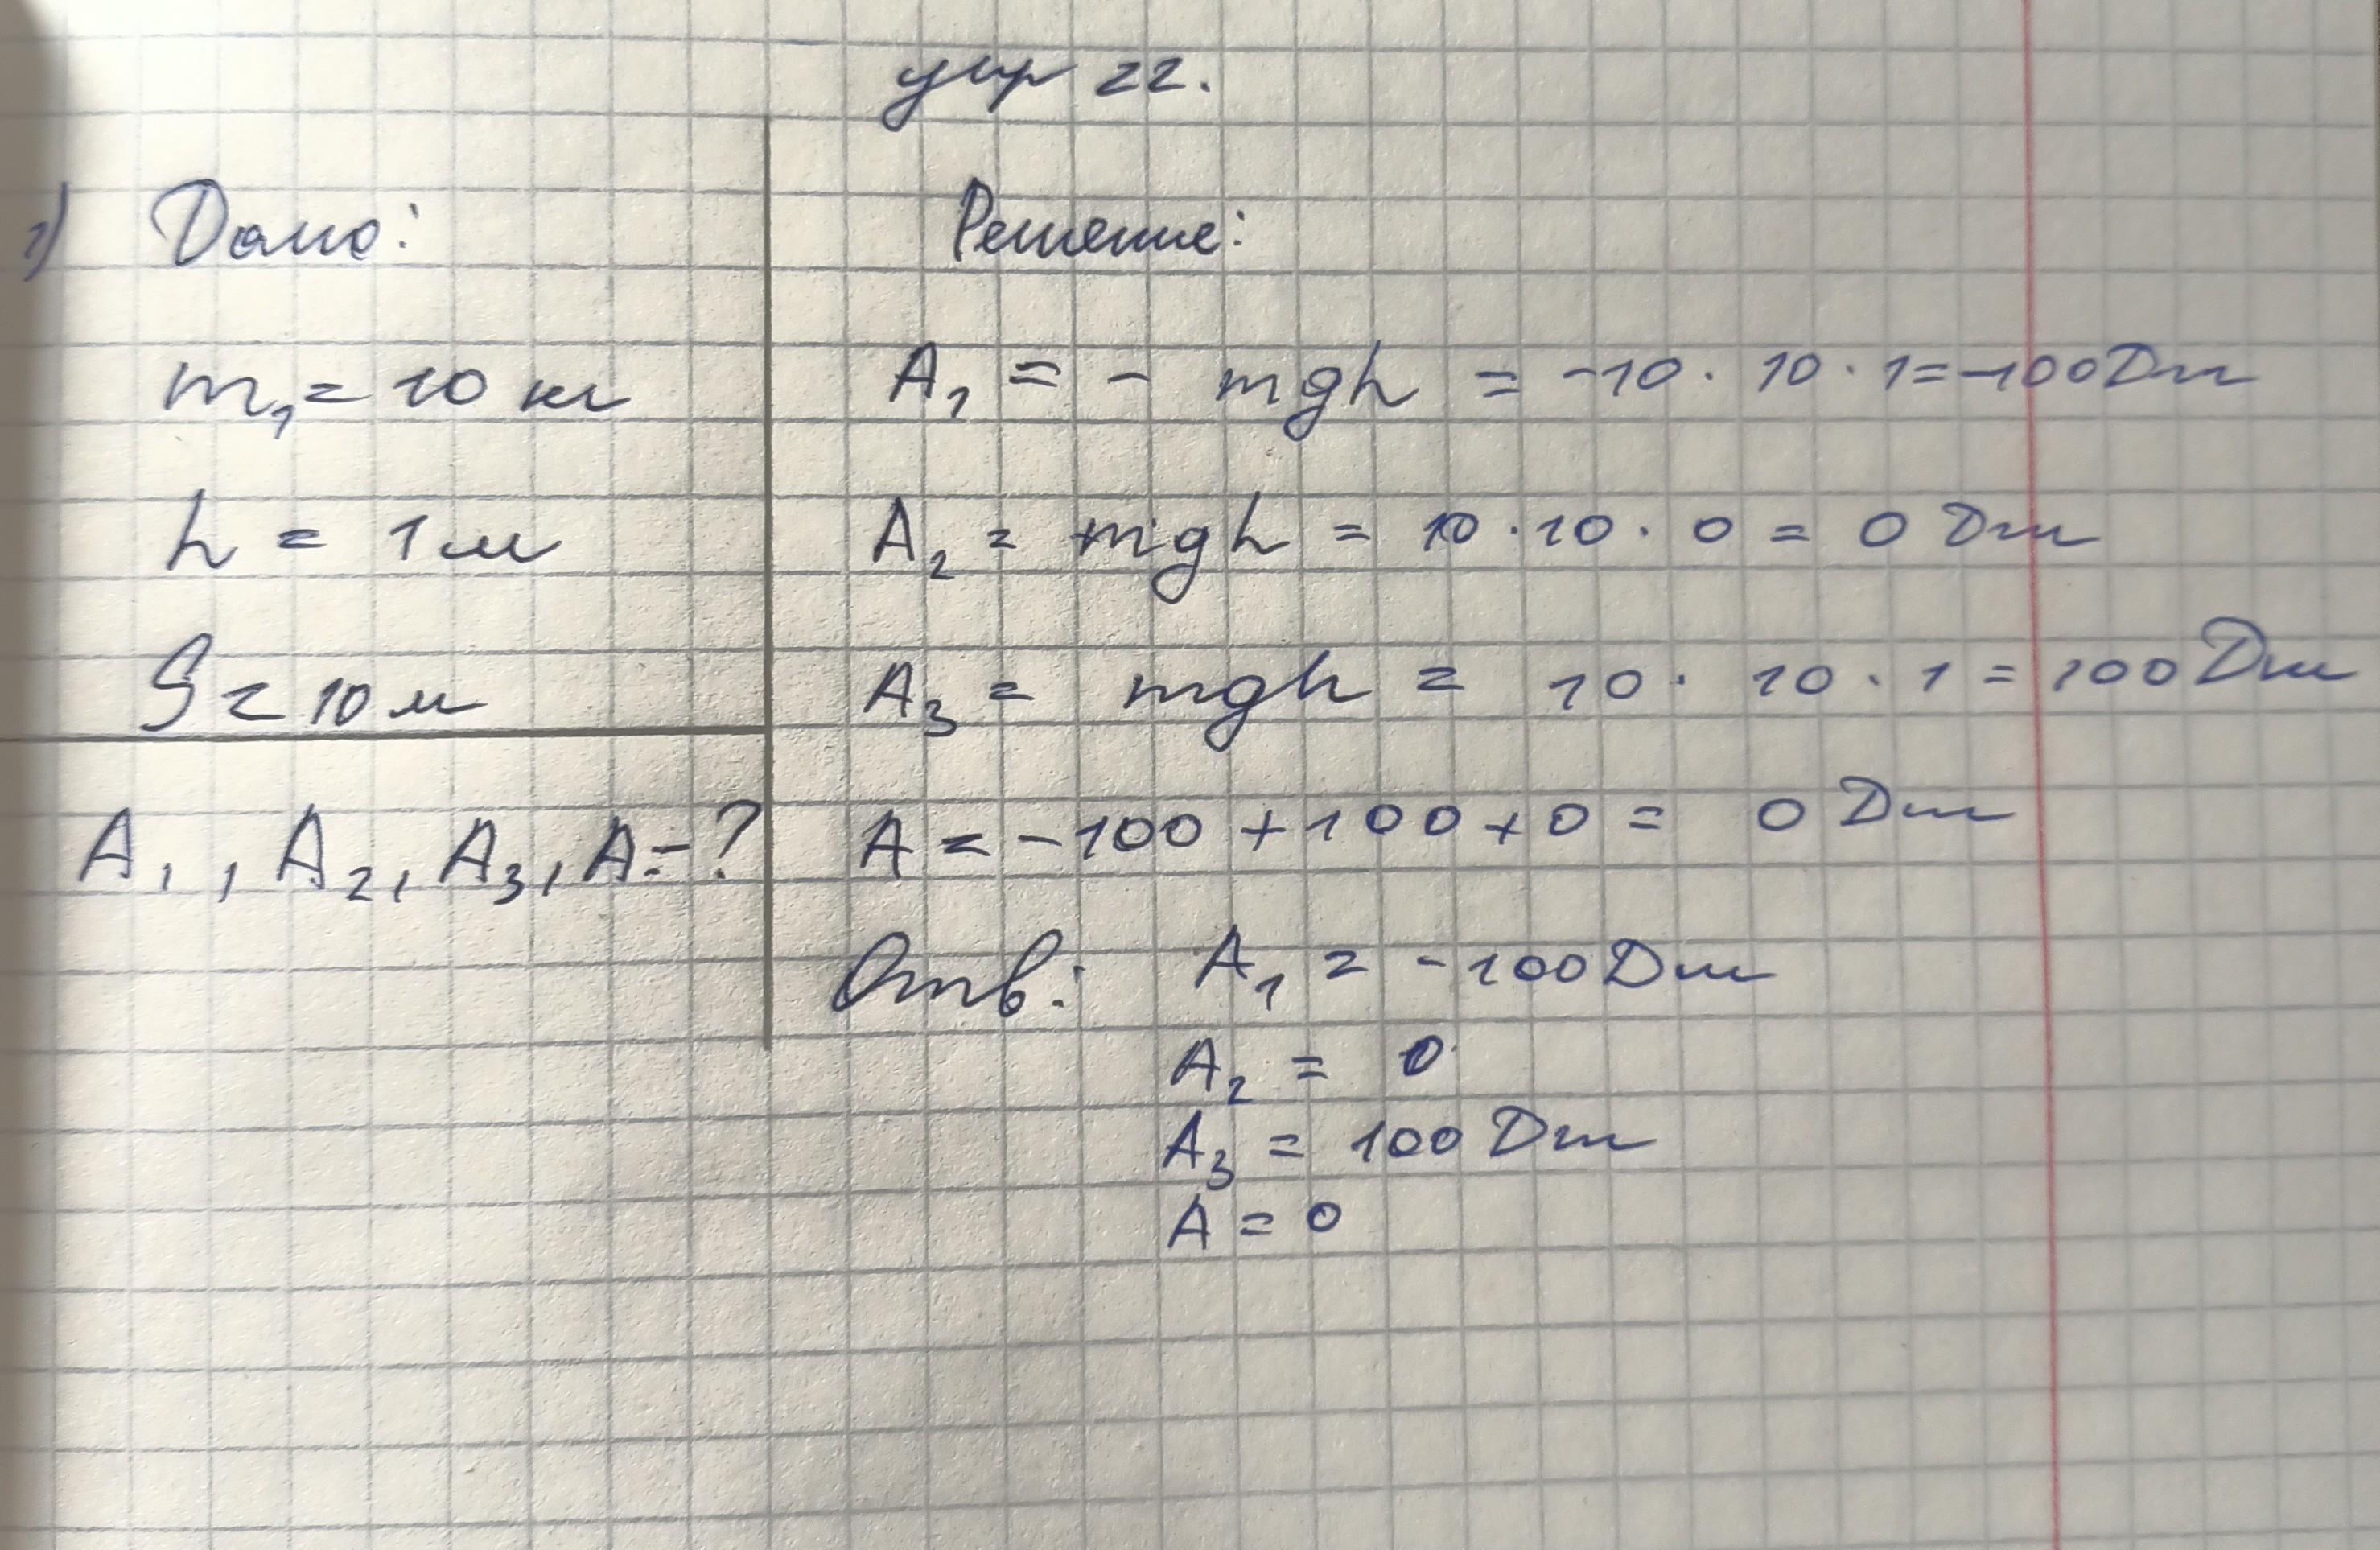 упр 22.
1) Дано:
m₁ = 10 кг
h = 1 м
S = 10 м
A₁, A₂, A₃, A - ?
Решение:
A₁ = - mgh = -10 · 10 · 1 = -100 Дж
A₂ = mgh = 10 · 10 · 0 = 0 Дж
A₃ = mgh = 10 · 10 · 1 = 100 Дж
A = -100 + 100 + 0 = 0 Дж
Отв: A₁ = -100 Дж
A₂ = 0
A₃ = 100 Дж
A = 0